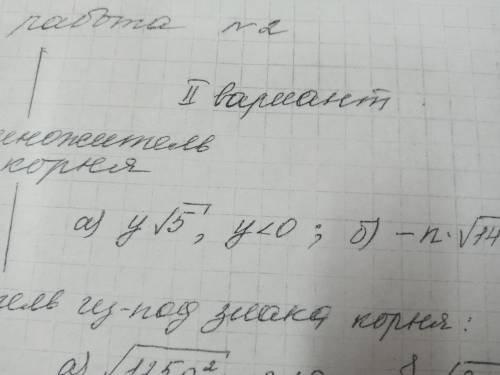 работа №2
II вариант
множитель
корня
а) y√5, y<0; б) -n·√14
из-под знака корня:
а) √125a²